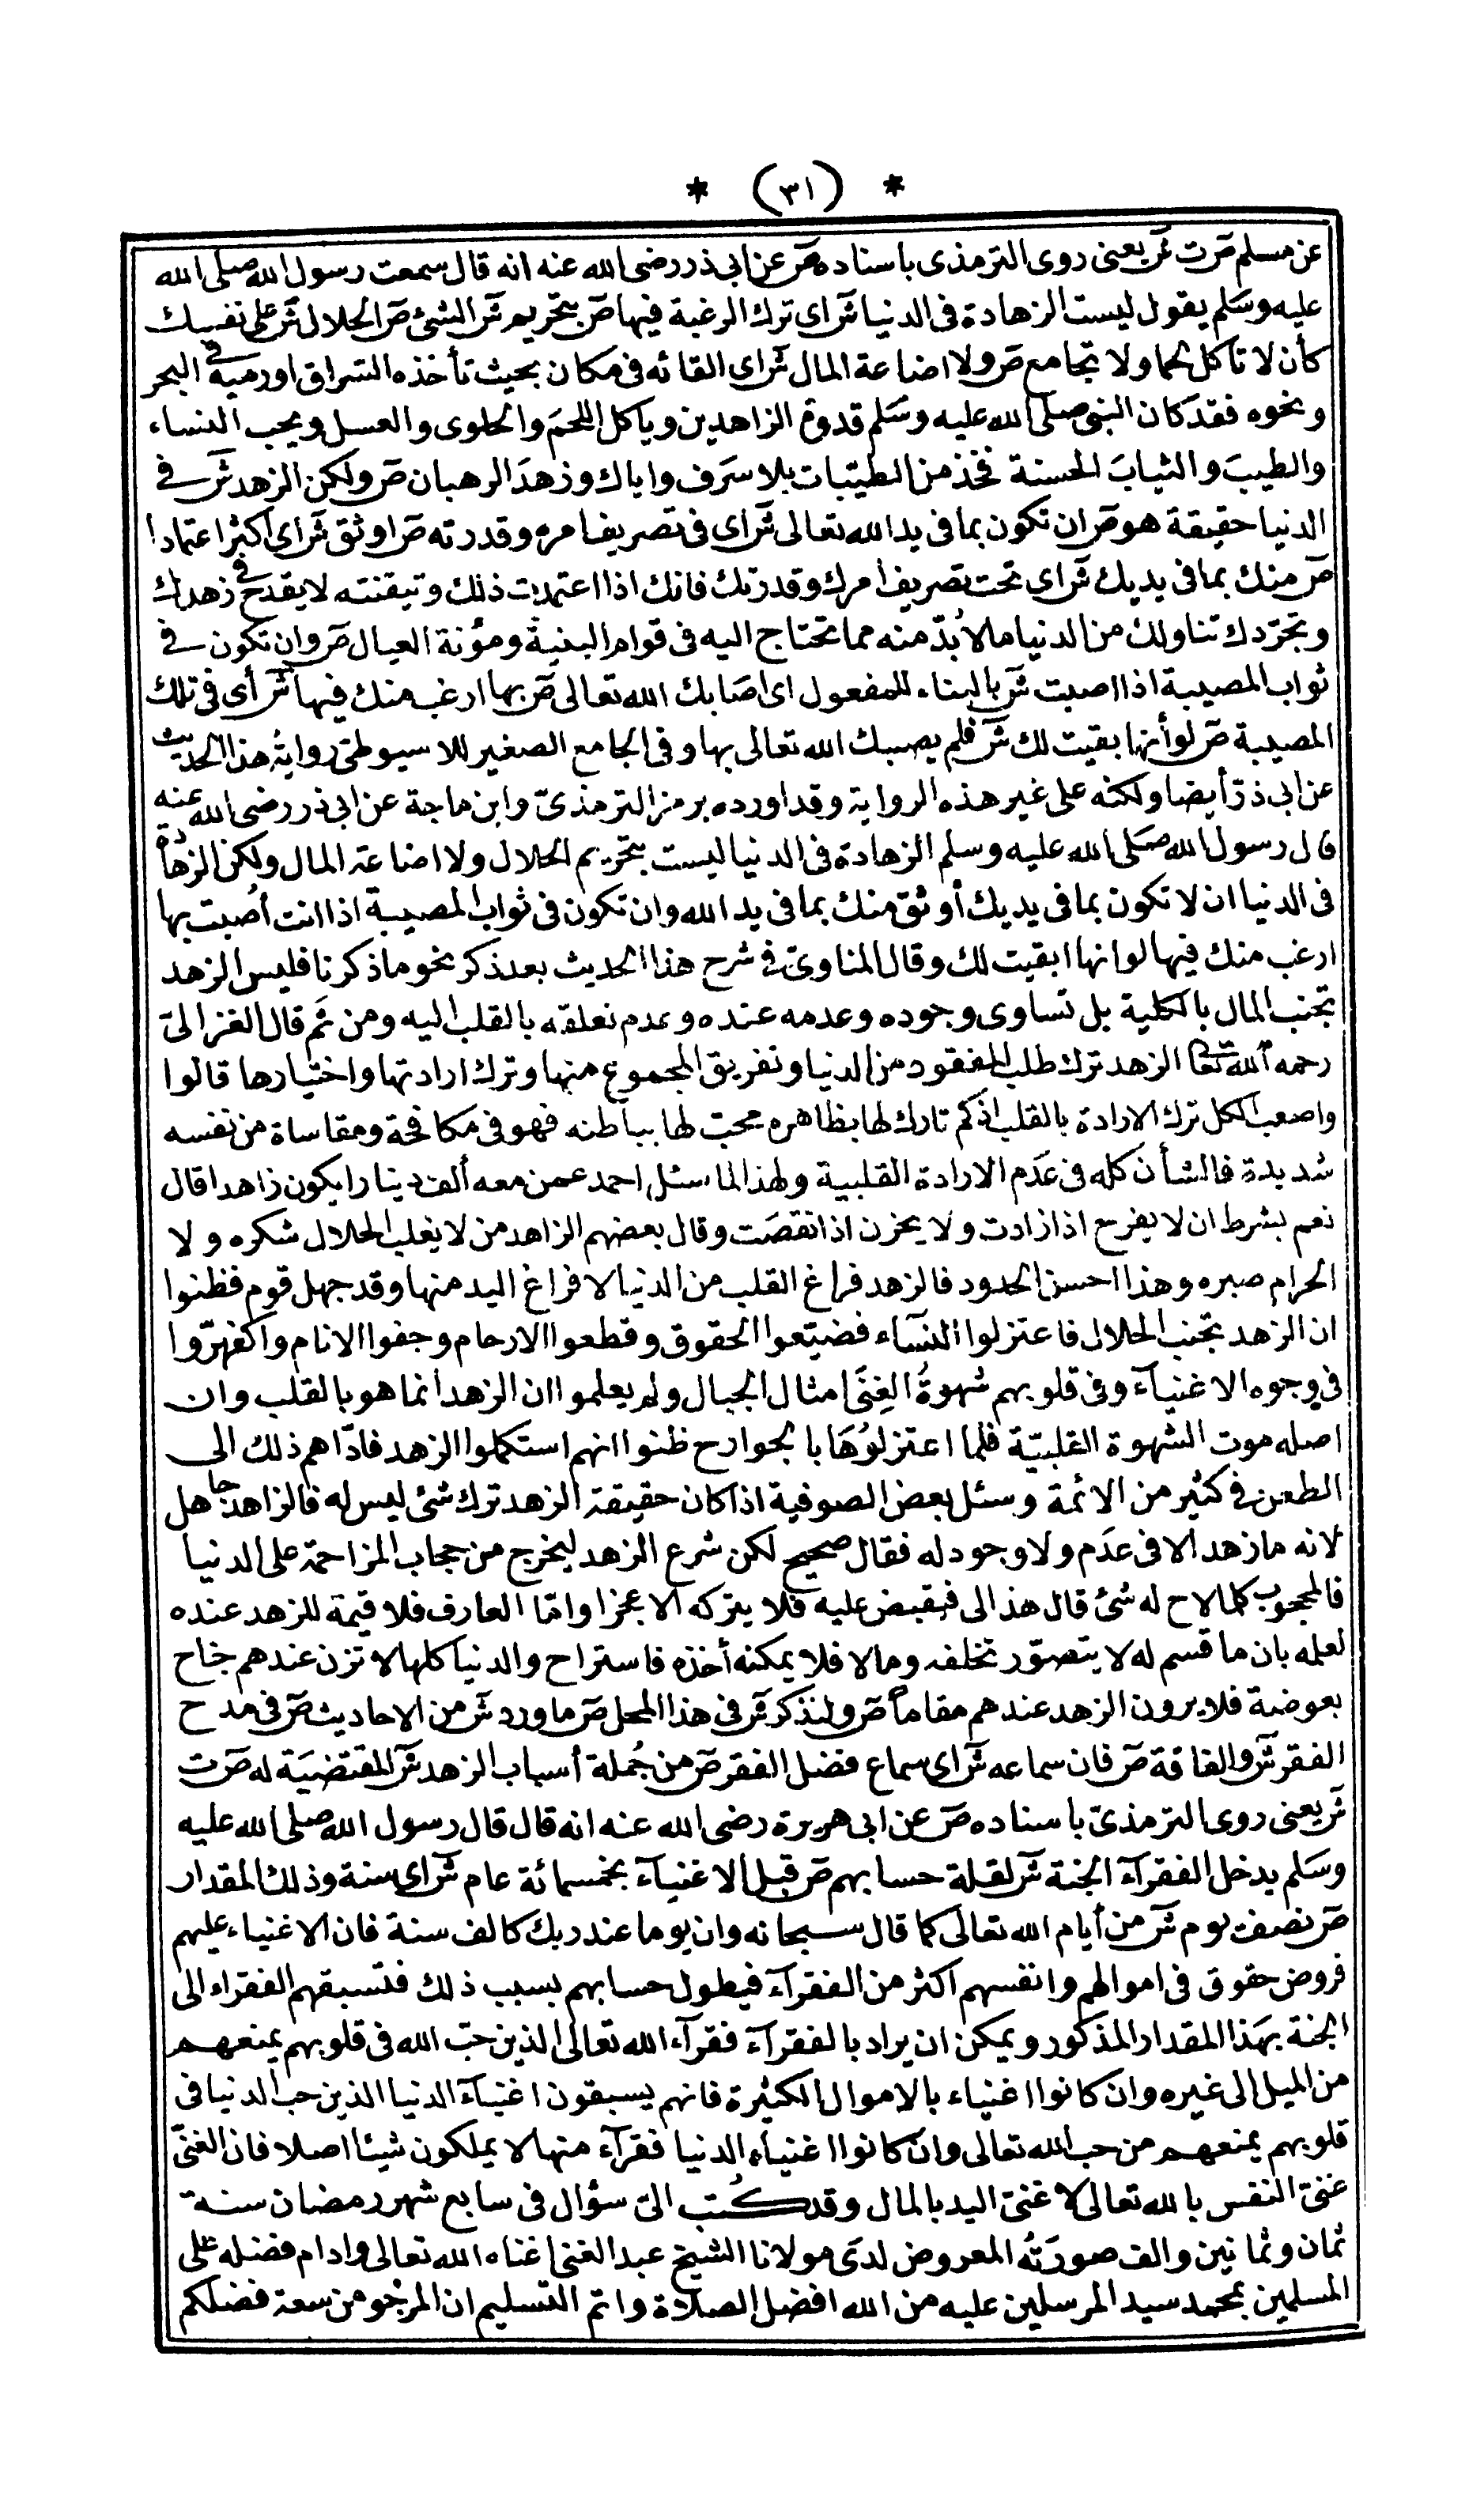 * (٣١) *
عن مسلم ص ت ش يعنى روى الترمذى باسناده ص عن ابى ذر رضى الله عنه انه قال سمعت رسول الله صلى الله
عليه وسلم يقول ليست الزهادة فى الدنيا ش اى ترك الرغبة فيها ص بتحريم ش الشئ ص الحلال ش على نفسك
كأن لا تاكل لحما ولا تجامع ص ولا اضاعة المال ش اى القائه فى مكان بحيث تأخذه السراق او رميه فى البحر
ونحوه فقد كان النبى صلى الله عليه وسلم قدوة الزاهدين وياكل اللحم والحلوى والعسل ويحب النساء
والطيب والثياب الحسنة فخذ من الطيبات بلا سرف واياك وزهد الرهبان ص ولكن الزهد ش فى
الدنيا حقيقة هو ص ان تكون بما فى يد الله تعالى ش اى فى تصريف امره وقدرته ص اوثق ش اى اكثر اعتمادا
ص منك بما فى يديك ش اى تحت تصريف أمرك وقدرتك فانك اذا اعتمدت ذلك وتيقنته لا يقدح فى زهدك
وتجرّدك تناولك من الدنيا ما لا بُدّ منه مما تحتاج اليه فى قوام البنية ومؤنة العيال ص وان تكون فى
ثواب المصيبة اذا اصبت ش بالبناء للمفعول اى اصابك الله تعالى ص بها ارغب منك فيها ش أى فى تلك
المصيبة ص لو أنها بقيت لك ش فلم يصبك الله تعالى بها وفى الجامع الصغير للاسيوطى رواية هذا الحديث
عن ابى ذرّ أيضا ولكنه على غير هذه الرواية وقد اورده برمز الترمذىّ وابن ماجة عن ابى ذر رضى الله عنه
قال رسول الله صلى الله عليه وسلم الزهادة فى الدنيا ليست بتحريم الحلال ولا اضاعة المال ولكن الزهادة
فى الدنيا ان لا تكون بما فى يديك أوثق منك بما فى يد الله وان تكون فى ثواب المصيبة اذا انت أصبت بها
ارغب منك فيها لو انها ابقيت لك وقال المناوىّ فى شرح هذا الحديث بعد ذكر نحو ما ذكرنا فليس الزهد
تجنب المال بالكلية بل تساوى وجوده وعدمه عنده وعدم تعلقه بالقلب اليه ومن ثَم قال الغزالىّ
رحمه الله تعا الزهد ترك طلب المفقود من الدنيا وتفريق المجموع منها وترك ارادتها واختيارها قالوا
واصعب الكل ترك الارادة بالقلب اذ كم تارك لها بظاهره محب لها بباطنه فهو فى مكافحة ومقاساة من نفسه
شديدة فالشأن كله فى عَدم الارادة القلبية ولهذا لما سئل احمد عمن معه ألف دينار ايكون زاهدا قال
نعم بشرط ان لا يفرح اذا زادت ولا يحزن اذا نقصت وقال بعضهم الزاهد من لا يغلب الحلال شكره ولا
الحرام صبره وهذا احسن الحدود فالزهد فراغ القلب من الدنيا لا فراغ اليد منها وقد جهل قوم فظنوا
ان الزهد تجنب الحلال فاعتزلوا النسآء فضيّعوا الحقوق وقطعوا الارحام وجفوا الانام واكفهرّوا
فى وجوه الاغنيآء وفى قلوبهم شهوةُ الغِنَى امثال الجبال ولم يعلموا ان الزهد انما هو بالقلب وان
اصله موت الشهوة القلبيّة فلما اعتزلوُهَا بالجوارح ظنوا انهم استكملوا الزهد فادّاهم ذلك الى
الطعن فى كثير من الائمة وسئل بعض الصوفية اذا كان حقيقة الزهد ترك شئ ليس له فالزاهد جاهل
لانه ما زهد الا فى عدَم ولا وجود له فقال صحيح لكن شرع الزهد ليخرج من حجاب المزاحمة على الدنيا
فالمحجوب كلما لاح له شئ قال هذا لى فيقبض عليه فلا يتركه الا عجزا وامّا العارف فلا قيمة للزهد عنده
لعلمه بان ما قسم له لا يتصوّر تخلفه وما لا فلا يمكنه أخذه فاستراح والدنيا كلها لا تزن عندهم جناح
بعوضة فلا يرون الزهد عندهم مقاماً ص ولنذكر ش فى هذا المحل ص ما ورد ش من الاحاديث ص فى مدح
الفقر ش والفاقة ص فان سماعه ش اى سماع فضل الفقر ص من جُملة أسباب الزهد ش المقتضيَة له ص ت
ش يعنى روى الترمذىّ باسناده ص عن ابى هريرة رضى الله عنه انه قال قال رسول الله صلى الله عليه
وسَلم يدخل الفقرآء الجنة ش لقلة حسابهم ص قبل الاغنيآء بخمسمائة عام ش اى سنة وذلك المقدار
ص نصف يوم ش من أيام الله تعالى كما قال سبحانه وان يوما عند ربك كالف سنة فان الاغنياء عليهم
فروض حقوق فى اموالهم وانفسهم اكثر من الفقرآء فيطول حسابهم بسبب ذلك فتسبقهم الفقراء الى
الجنة بهذا المقدار المذكور ويمكن ان يراد بالفقرآء فقرآء الله تعالى الذين حبّ الله فى قلوبهم يمنعهم
من الميل الى غيره وان كانوا اغنياء بالاموال الكثيرة فانهم يسبقون اغنيآء الدنيا الذين حب الدنيا فى
قلوبهم يمنعهم من حب الله تعالى وان كانوا اغنياء الدنيا فقرآء منها لا يملكون شيئا اصلا فان الغنىّ
غنىّ النفس بالله تعالى لا غنىّ اليد بالمال وقد كُتب الىّ سؤال فى سابع شهر رمضان سنة
ثمان وثمانين والف صورَتُه المعروض لدى مولانا الشيخ عبد الغنى اغناه الله تعالى وادام فضله على
المسلمين بمحمد سيد المرسلين عليه من الله افضل الصلاة واتم التسليم ان المرجو من سعة فضلكم